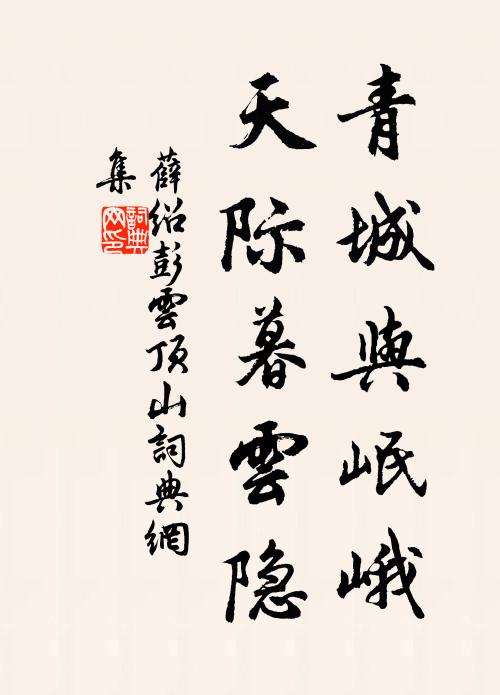 青城與岷峨
天际暮雲隐
薛绍彭雲顶山詞典網
集
詞典网印